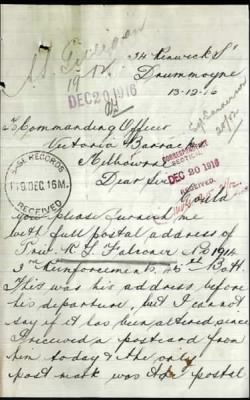 34 Renwick St
Drummoyne
DEC 20 1916
13-12-16
To Commanding Officer
Victoria Barracks
Melbourne
CORRESPONDENCE
SECTION
DEC 20 1916
RECEIVED
RECORDS
DEC. 16 M.
RECEIVED
Dear Sir
Could
you please furnish me
with full postal address of
No 1914
3rd Reinforcements Batt
This was his address before
his departure, but I cannot
say if it has been altered since
I received a postcard from
him today & the only
post mark was postal